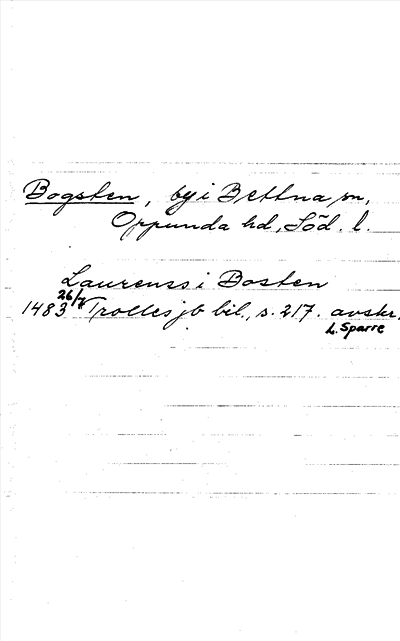 Bogsten, by i Bettna sn,
Oppunda hd, Söd. l.
Laurenss i Bosten
1483 26/7 Trolles jb bil., s. 217. avskr.
L. Sparre